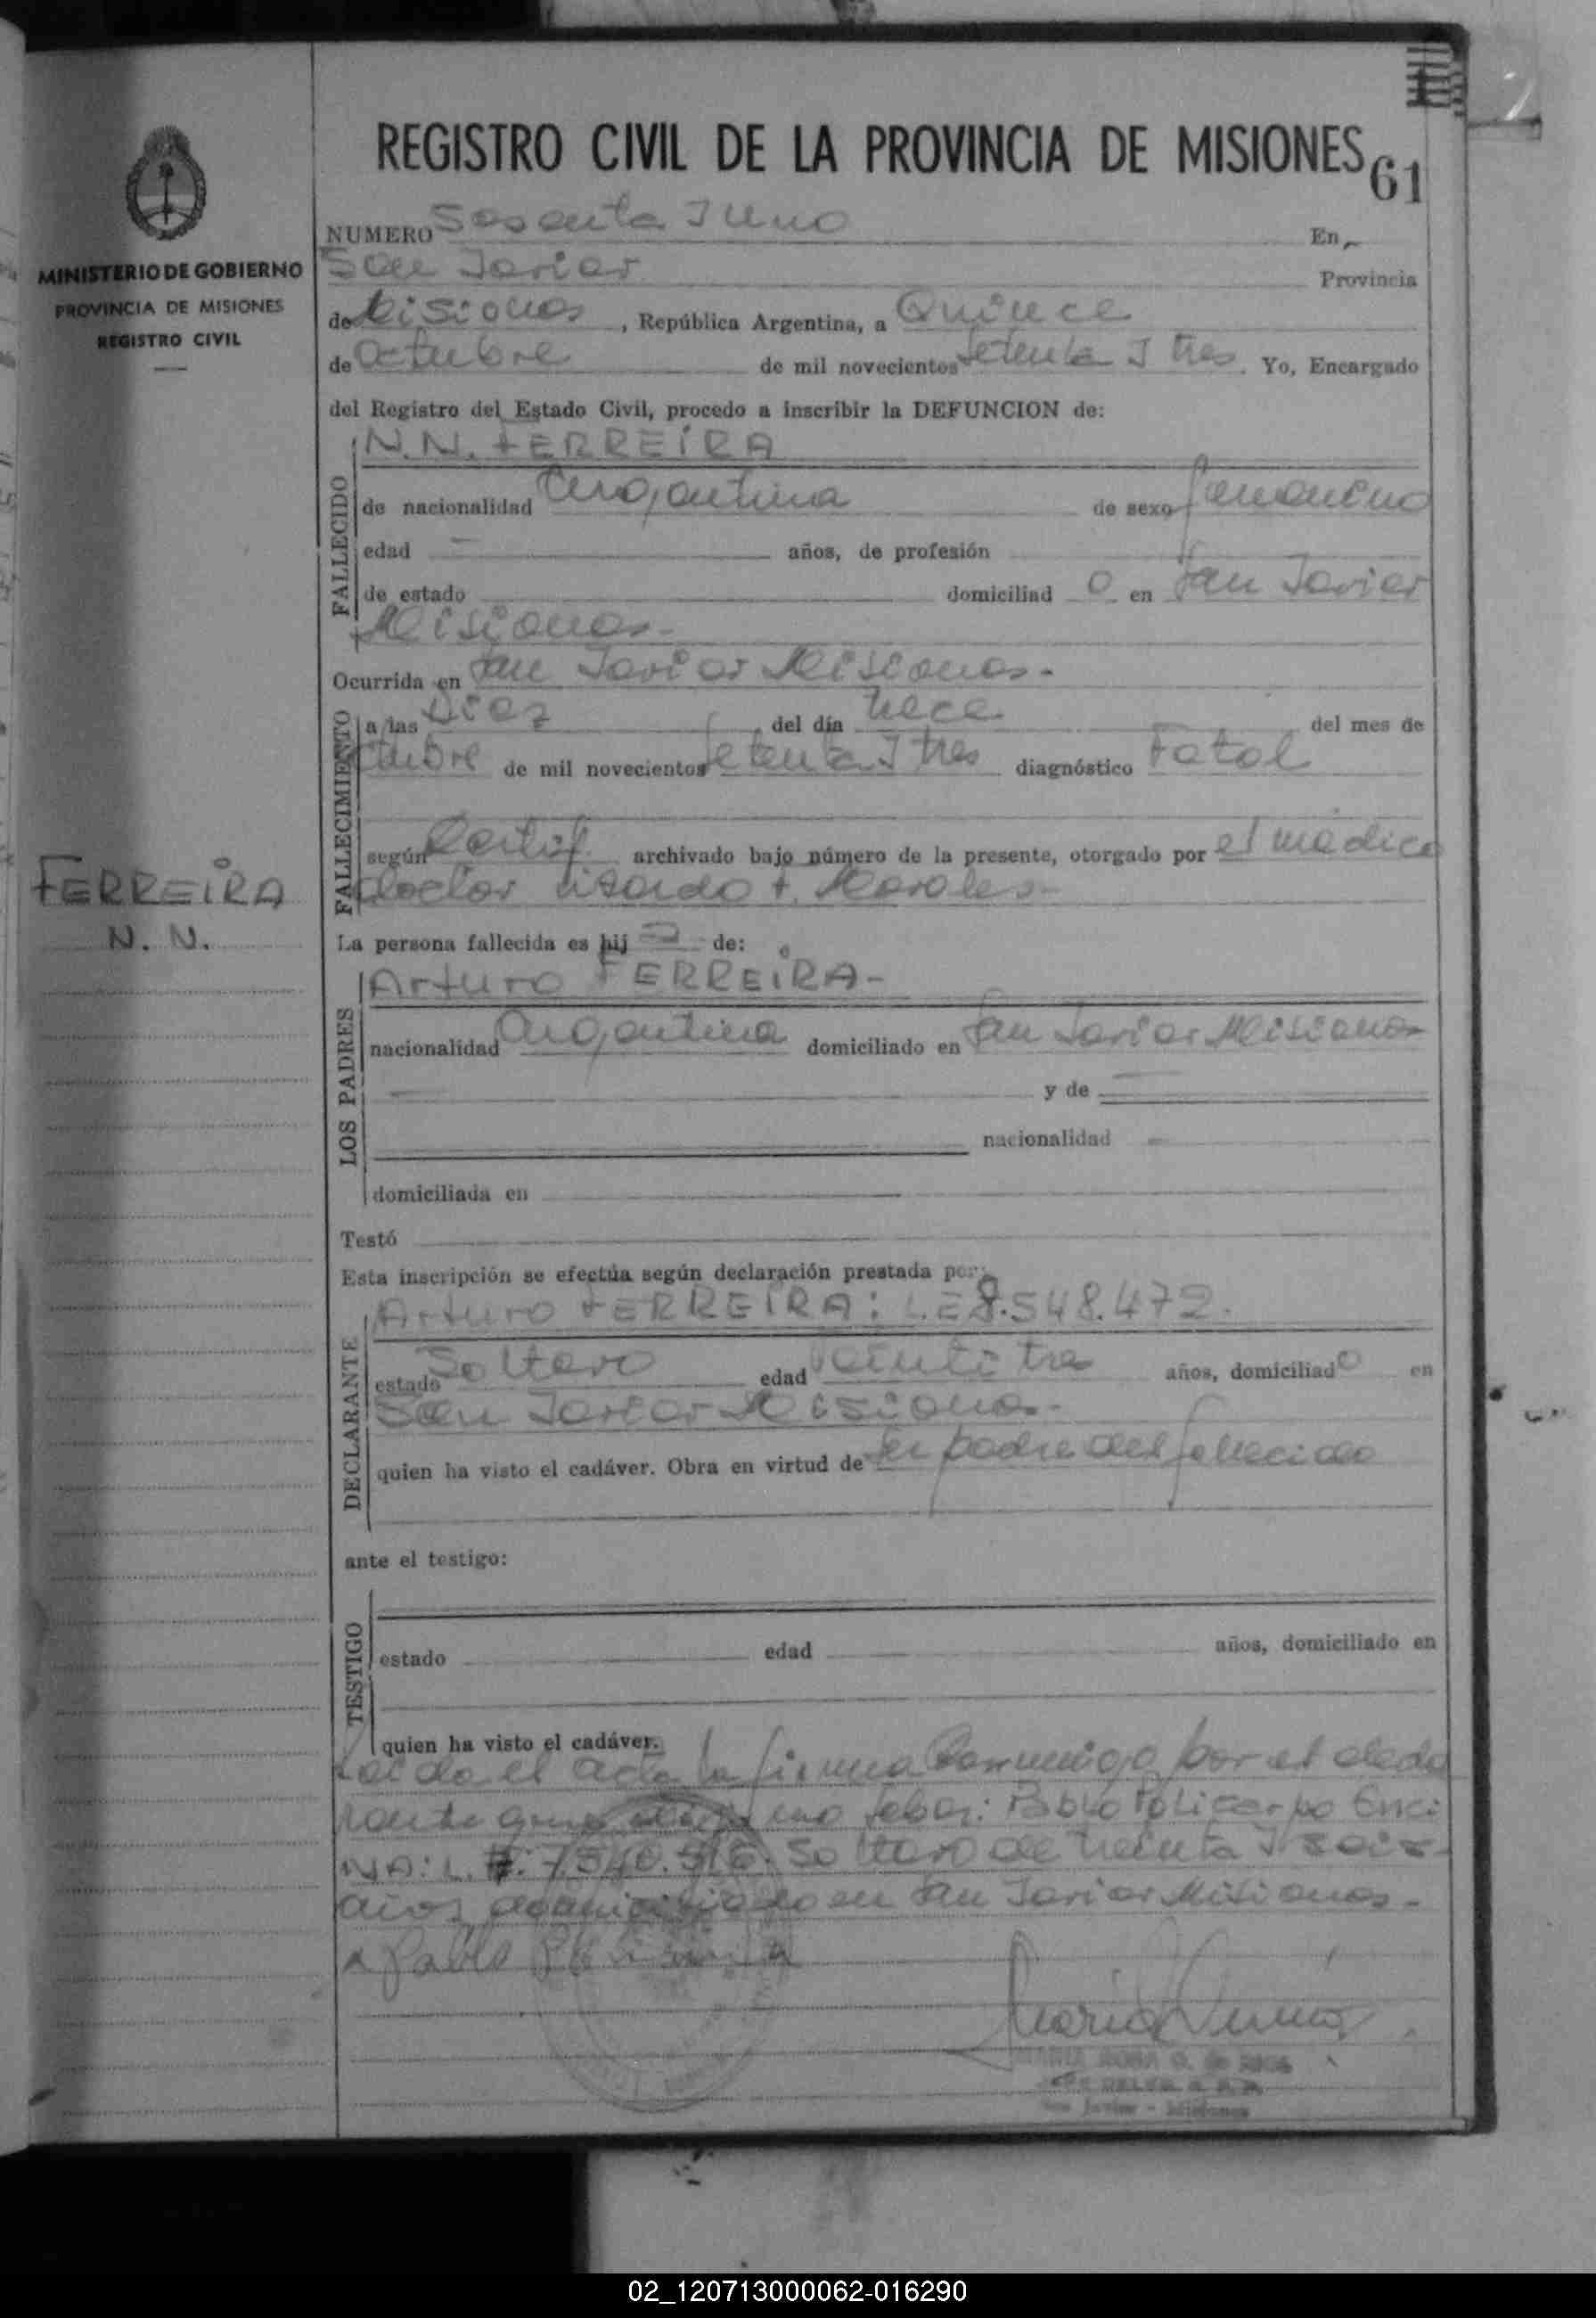 REGISTRO CIVIL DE LA PROVINCIA DE MISIONES 61
MINISTERIO DE GOBIERNO
PROVINCIA DE MISIONES
REGISTRO CIVIL
NUMERO Sesenta I Uno En
San Javier Provincia
de Misiones, República Argentina, a Quince
de Octubre de mil novecientos setenta I tres. Yo, Encargado
del Registro del Estado Civil, procedo a inscribir la DEFUNCION de:
N.N. FERREIRA
FALLECIDO
de nacionalidad Argentina de sexo femenino
edad — años, de profesión
de estado domiciliad o en San Javier
Misiones-
Ocurrida en San Javier Misiones-
FALLECIMIENTO
a las Diez del día trece del mes de
octubre de mil novecientos setenta I tres diagnóstico Fetal
según Certif. archivado bajo número de la presente, otorgado por el medico
doctor Lizardo F. Morales-
FERREIRA
N. N.
La persona fallecida es hij de:
LOS PADRES
Arturo FERREIRA-
nacionalidad Argentina domiciliado en San Javier Misiones
— y de —
nacionalidad —
domiciliada en
Testó
Esta inscripción se efectúa según declaración prestada por:
DECLARANTE
Arturo FERREIRA: L.E 8.548.472.
estado Soltero edad veinti tres años, domiciliado en
San Javier Misiones-
quien ha visto el cadáver. Obra en virtud de ser padre del fallecido
ante el testigo:
TESTIGO
estado edad años, domiciliado en
quien ha visto el cadáver.
Leida el acta la firma Conmigo por el decla
rante que no saber: Pablo Policarpo Enci
NA: L. 7.540.516. Soltero de treinta I seis
años domiciliado en San Javier Misiones-
Pablo
MARIA ROSA G. de RIOS
San Javier - Misiones
02_120713000062-016290